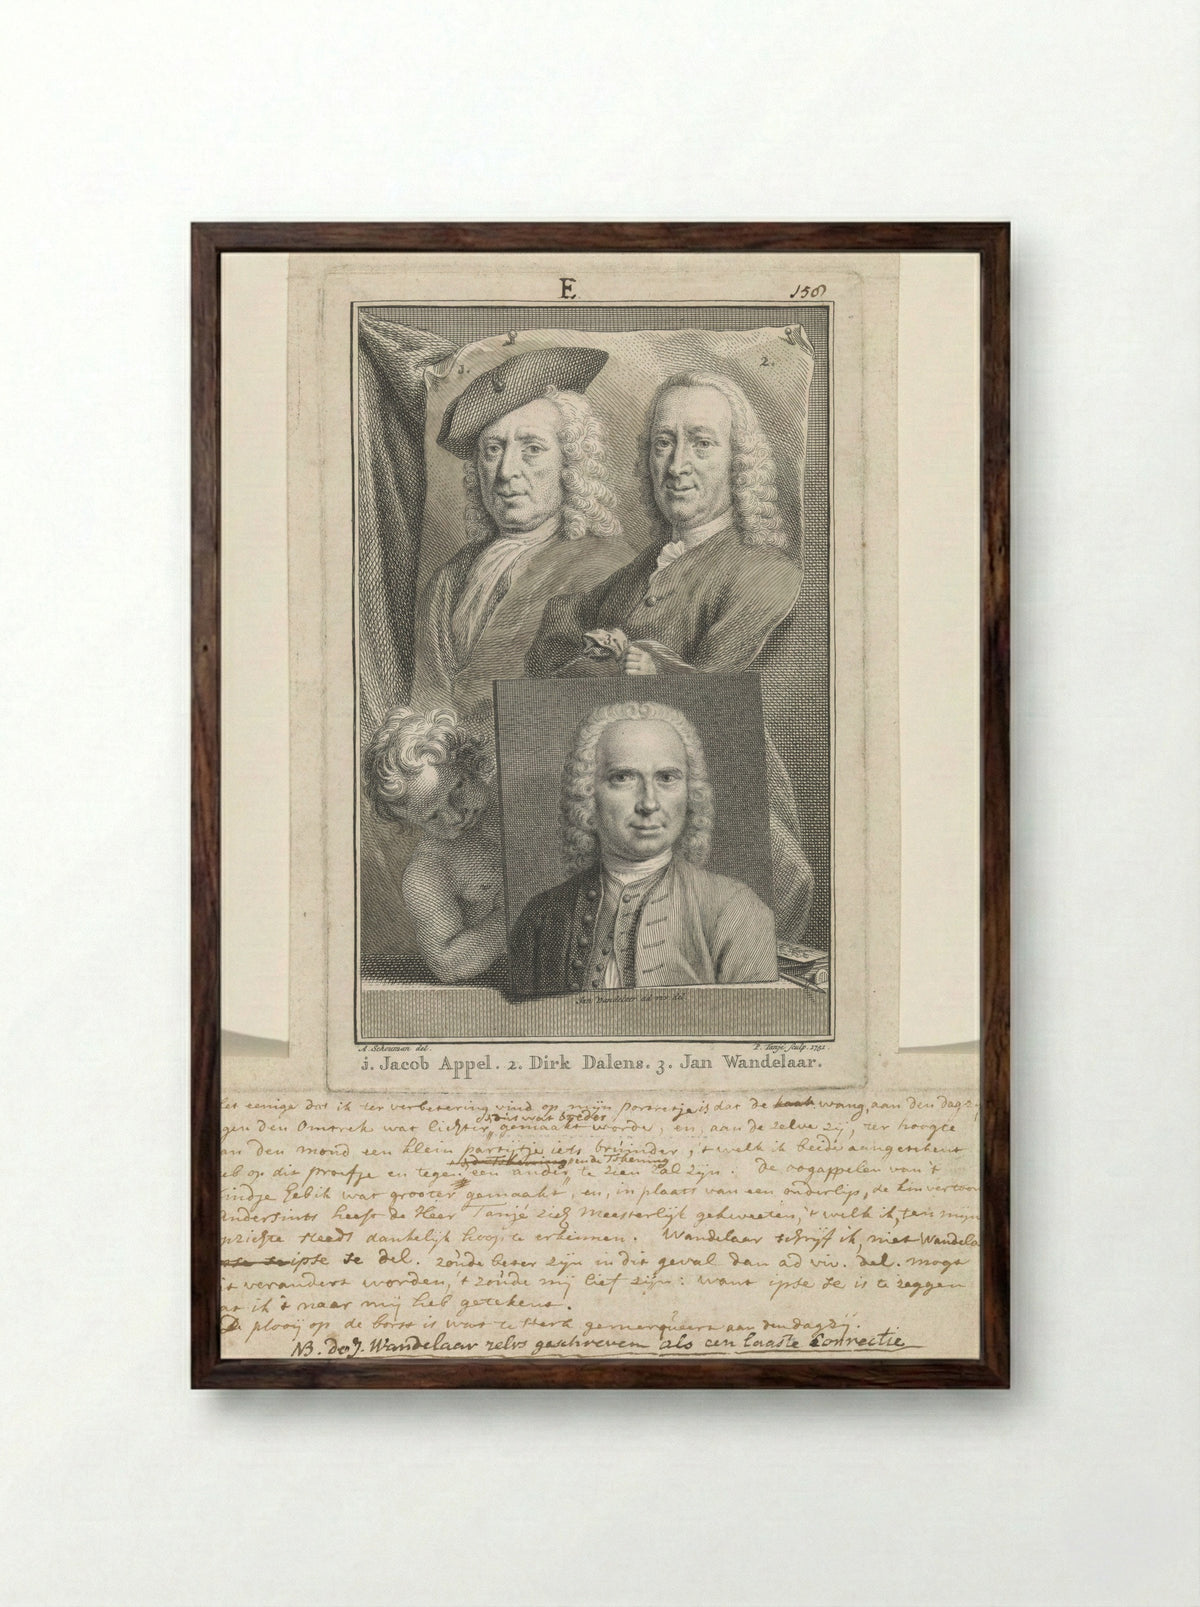 E
156
1.
2.
3.
Jan Wandelaar ad viv. del.
A. Schouman del.
P. Tanjé sculp. 1751.
j. Jacob Appel. 2. Dirk Dalens. 3. Jan Wandelaar.
het eenige dat ik ter verbetering vind op mijn portretje is dat de kaak wang, aan den dag
gen den Omtrek wat lichter, gemaakt worde, en, aan de zelve zij, ter hoogte
an den mond een klein partijtje iets bruinder, 't welk ik beide aangetekent
eb op dit proefje en tegen een ander te zien zal zijn: de oogappelen van 't
kindje heb ik wat grooter gemaakt, en, in plaats van een onderlip, de kin vertoo
Andersints heeft de Heer Tanjé zich meesterlijk gekweeten, 't welk ik, ten mijn
opzichte steeds dankelijk hoop te erkennen. Wandelaar schrijf ik, niet Wandela
ipse se del. zoude beter zijn in dit geval dan ad viv. del. mogt
it verandert worden, 't zoude mij lief zijn: want ipse se is te zeggen
at ik 't naar mij heb getekent.
De plooij op de borst is wat te sterk gemerqueert aan den dagzij.
NB. door J. Wandelaar zelvs geschreven als een laaste Correctie